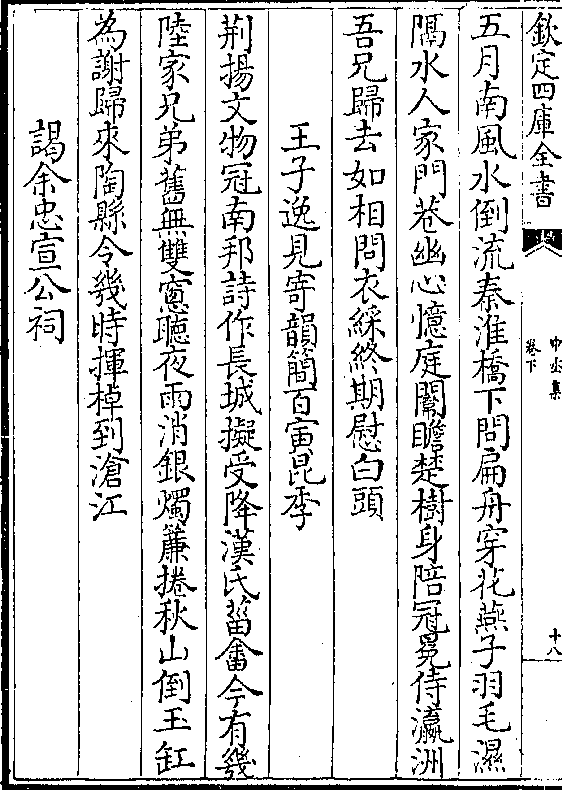 欽定四庫全書
卷下
十八
五月南風水倒流秦淮橋下問扁舟穿花燕子羽毛濕
隔水人家門巷幽心憶庭闈瞻楚樹身陪冠冕侍瀛洲
吾兄歸去如相問衣綵終期慰白頭
王子逸見寄韻簡百寅昆季
荆揚文物冠南邦詩作長城擬受降漢氏菑畬今有幾
陸家兄弟舊無雙窓聽夜雨消銀燭簾捲秋山倒玉缸
為謝歸來陶縣令幾時揮棹到滄江
謁余忠宣公祠